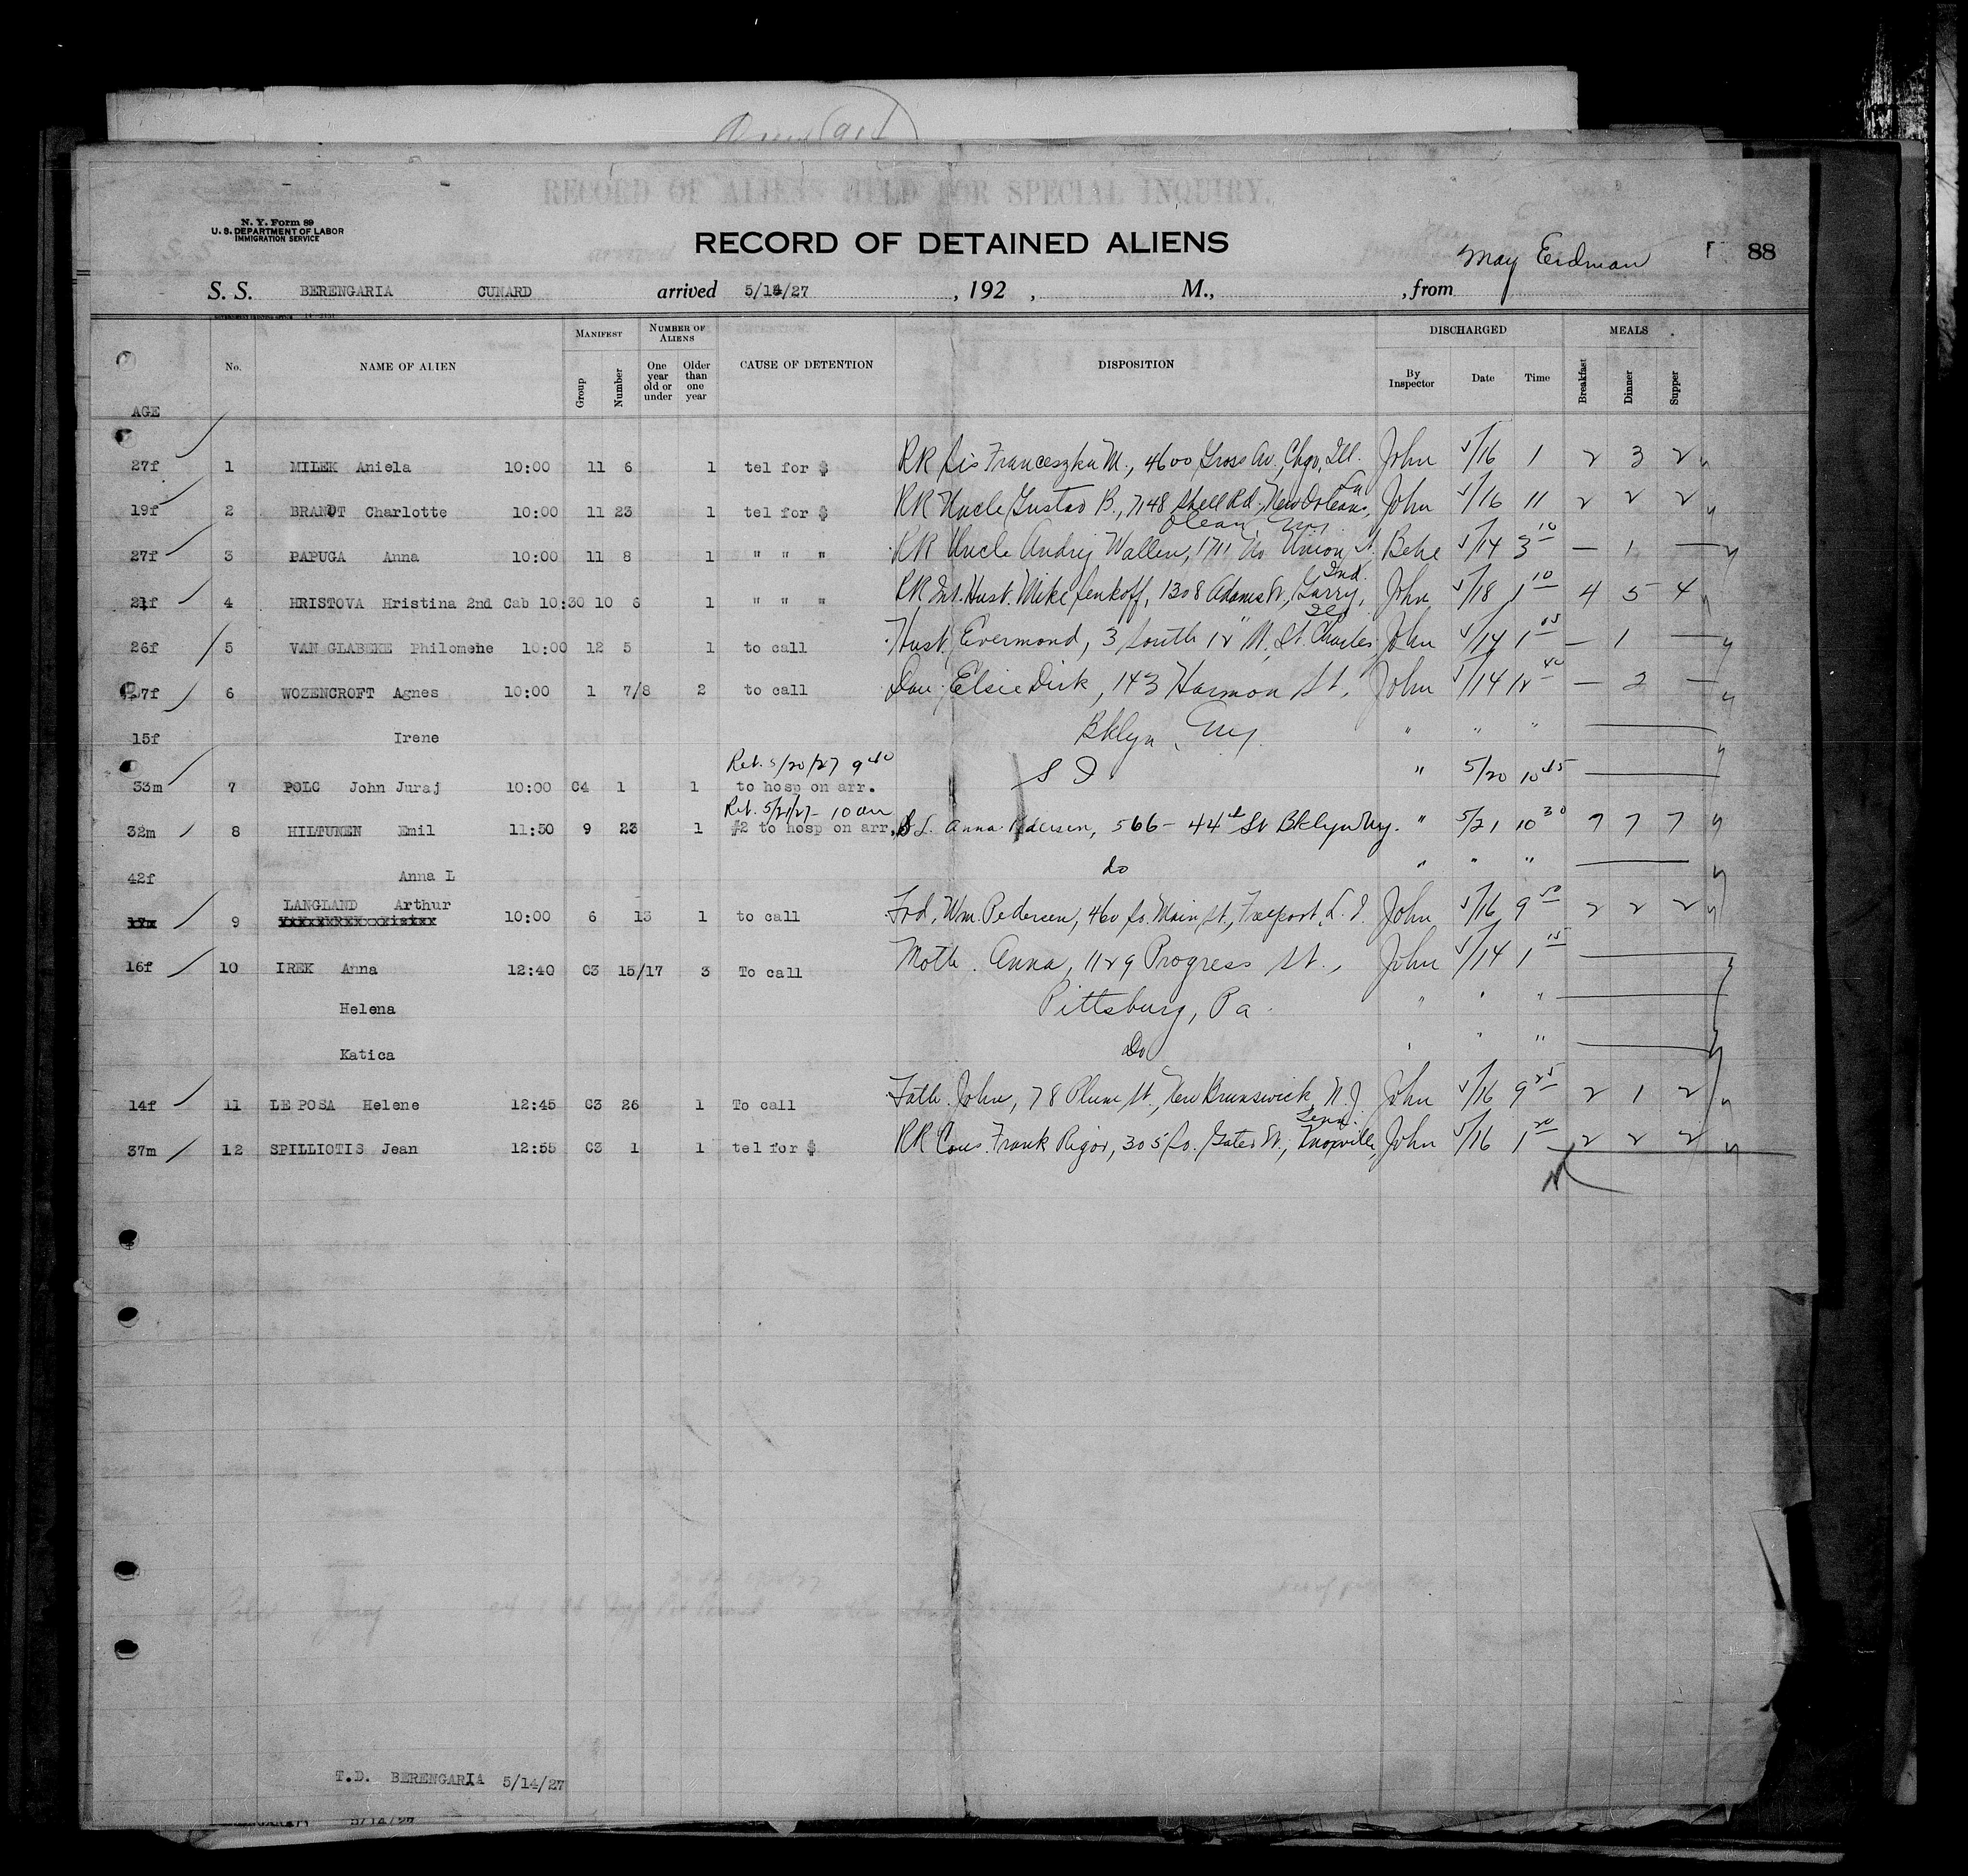 RECORD OF ALIENS HELD FOR SPECIAL INQUIRY.
N. Y. Form 89
U. S. DEPARTMENT OF LABOR
IMMIGRATION SERVICE
RECORD OF DETAINED ALIENS
May Erdman
88
S. S. BERENGARIA CUNARD arrived 5/14/27 , 192 , M., , from
AGE No. NAME OF ALIEN MANIFEST Group Number NUMBER OF ALIENS One year old or under Older than one year CAUSE OF DETENTION DISPOSITION DISCHARGED By Inspector Date Time MEALS Breakfast Dinner Supper
27f 1 MILEK Aniela 10:00 11 6 1 tel for $ RR Sis Franceszka M., 4600 Gross Av., Chgo, Ill. John 5/16 1 2 3 2
19f 2 BRANDT Charlotte 10:00 11 23 1 tel for $ RR Uncle Gustav B., 7148 Shell Rd., New Orleans, La John 5/16 11 2 2 2
27f 3 PAPUGA Anna 10:00 11 8 1 " " " RR Uncle Andrij Wallen, 1711 No Union St. Olean Ny. 5/14 3 10 — 1 —
21f 4 HRISTOVA Hristina 2nd Cab 10:30 10 6 1 " " " RR Int. Husb. Mike Jenkoff, 1308 Adams St., Garry, Ind. John 5/18 1 10 4 5 4
26f 5 VAN GLABEKE Philomene 10:00 12 5 1 to call Husb. Evermond, 3 South 12" St. St. Charles, Ill John 5/14 1 05 — 1 —
37f 6 WOZENCROFT Agnes 10:00 1 7/8 2 to call Dau. Elsie Dirk, 143 Harmon St., John 5/14 12 40 — 2 —
15f Irene Bklyn, Ny. " " "
Ret. 5/20/27 9 40
33m 7 POLC John Juraj 10:00 C4 1 1 to hosp on arr. S I " 5/20 10 45
Ret. 5/21/27 - 10 am
32m 8 HILTUNEN Emil 11:50 9 23 1 #2 to hosp on arr. Anna Pedersen, 566 - 44th St Bklyn Ny. " 5/21 10 30 7 7 7
42f Anna L do " " "
LANGLAND Arthur
9 10:00 6 13 1 to call Frd. Wm. Pedersen, 460 So. Main St., Freeport, L. I. John 5/16 9 50 2 2 2
16f 10 IREK Anna 12:40 C3 15/17 3 To call Moth. Anna, 1129 Progress St., John 5/14 1 15
Helena Pittsburg, Pa. " " "
Katica Do " " "
14f 11 LE POSA Helene 12:45 C3 26 1 To call Fath. John, 78 Plum St., New Brunswick, N. J. John 5/16 9 25 2 1 2
37m 12 SPILLIOTIS Jean 12:55 C3 1 1 tel for $ RR Cous. Frank Rigor, 305 So. Gates St., Knoxville, Tenn. John 5/16 1 20 2 2 2
T.D. BERENGARIA 5/14/27
5/14/27